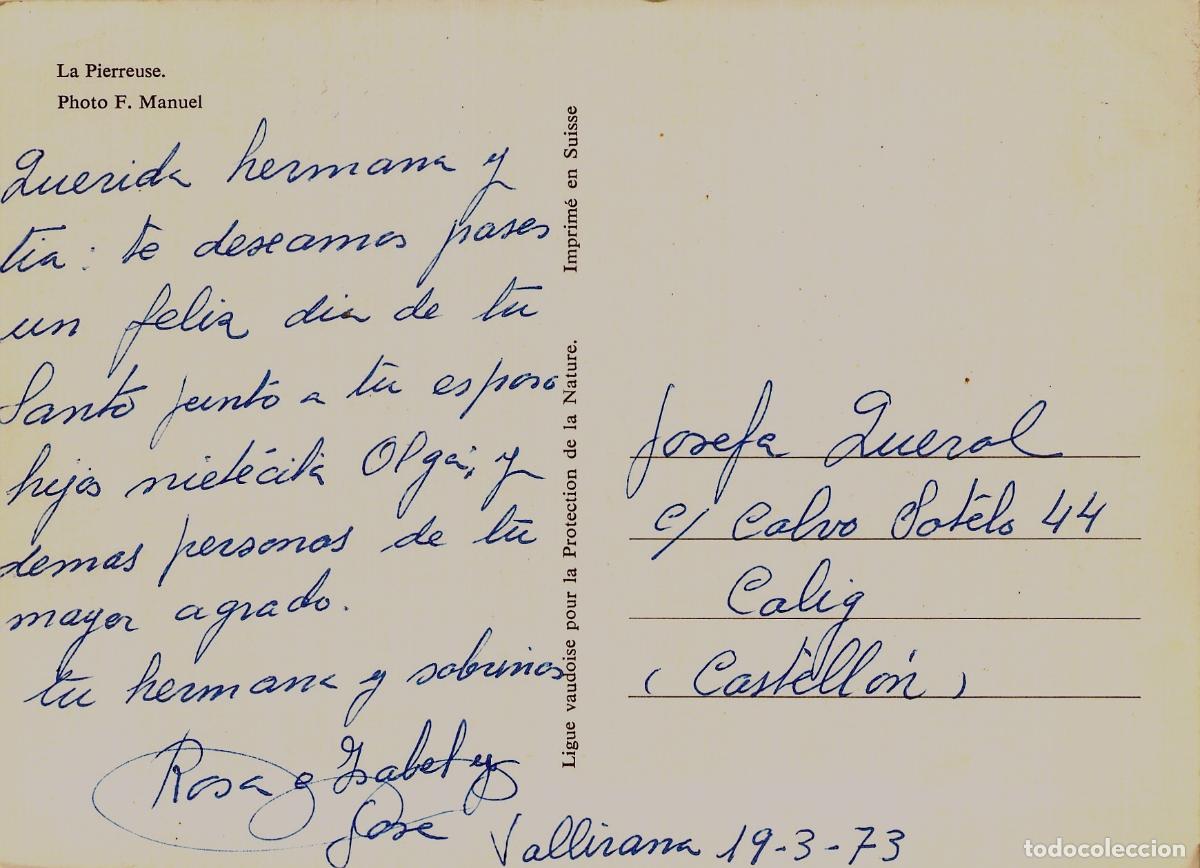 La Pierreuse.
Photo F. Manuel
Querida hermana y
tia: te deseamos pases
un feliz dia de tu
Santo junto a tu esposo
hijos nietécita Olga, y
demas personas de tu
mayor agrado.
tu hermana y sobrinos
Rosa e Isabel y
Jose
Vallirana 19-3-73
Ligue vaudoise pour la Protection de la Nature. Imprimé en Suisse
Josefa Querol
c/ Calvo Sotélo 44
Calig
(Castellón)
todocoleccion